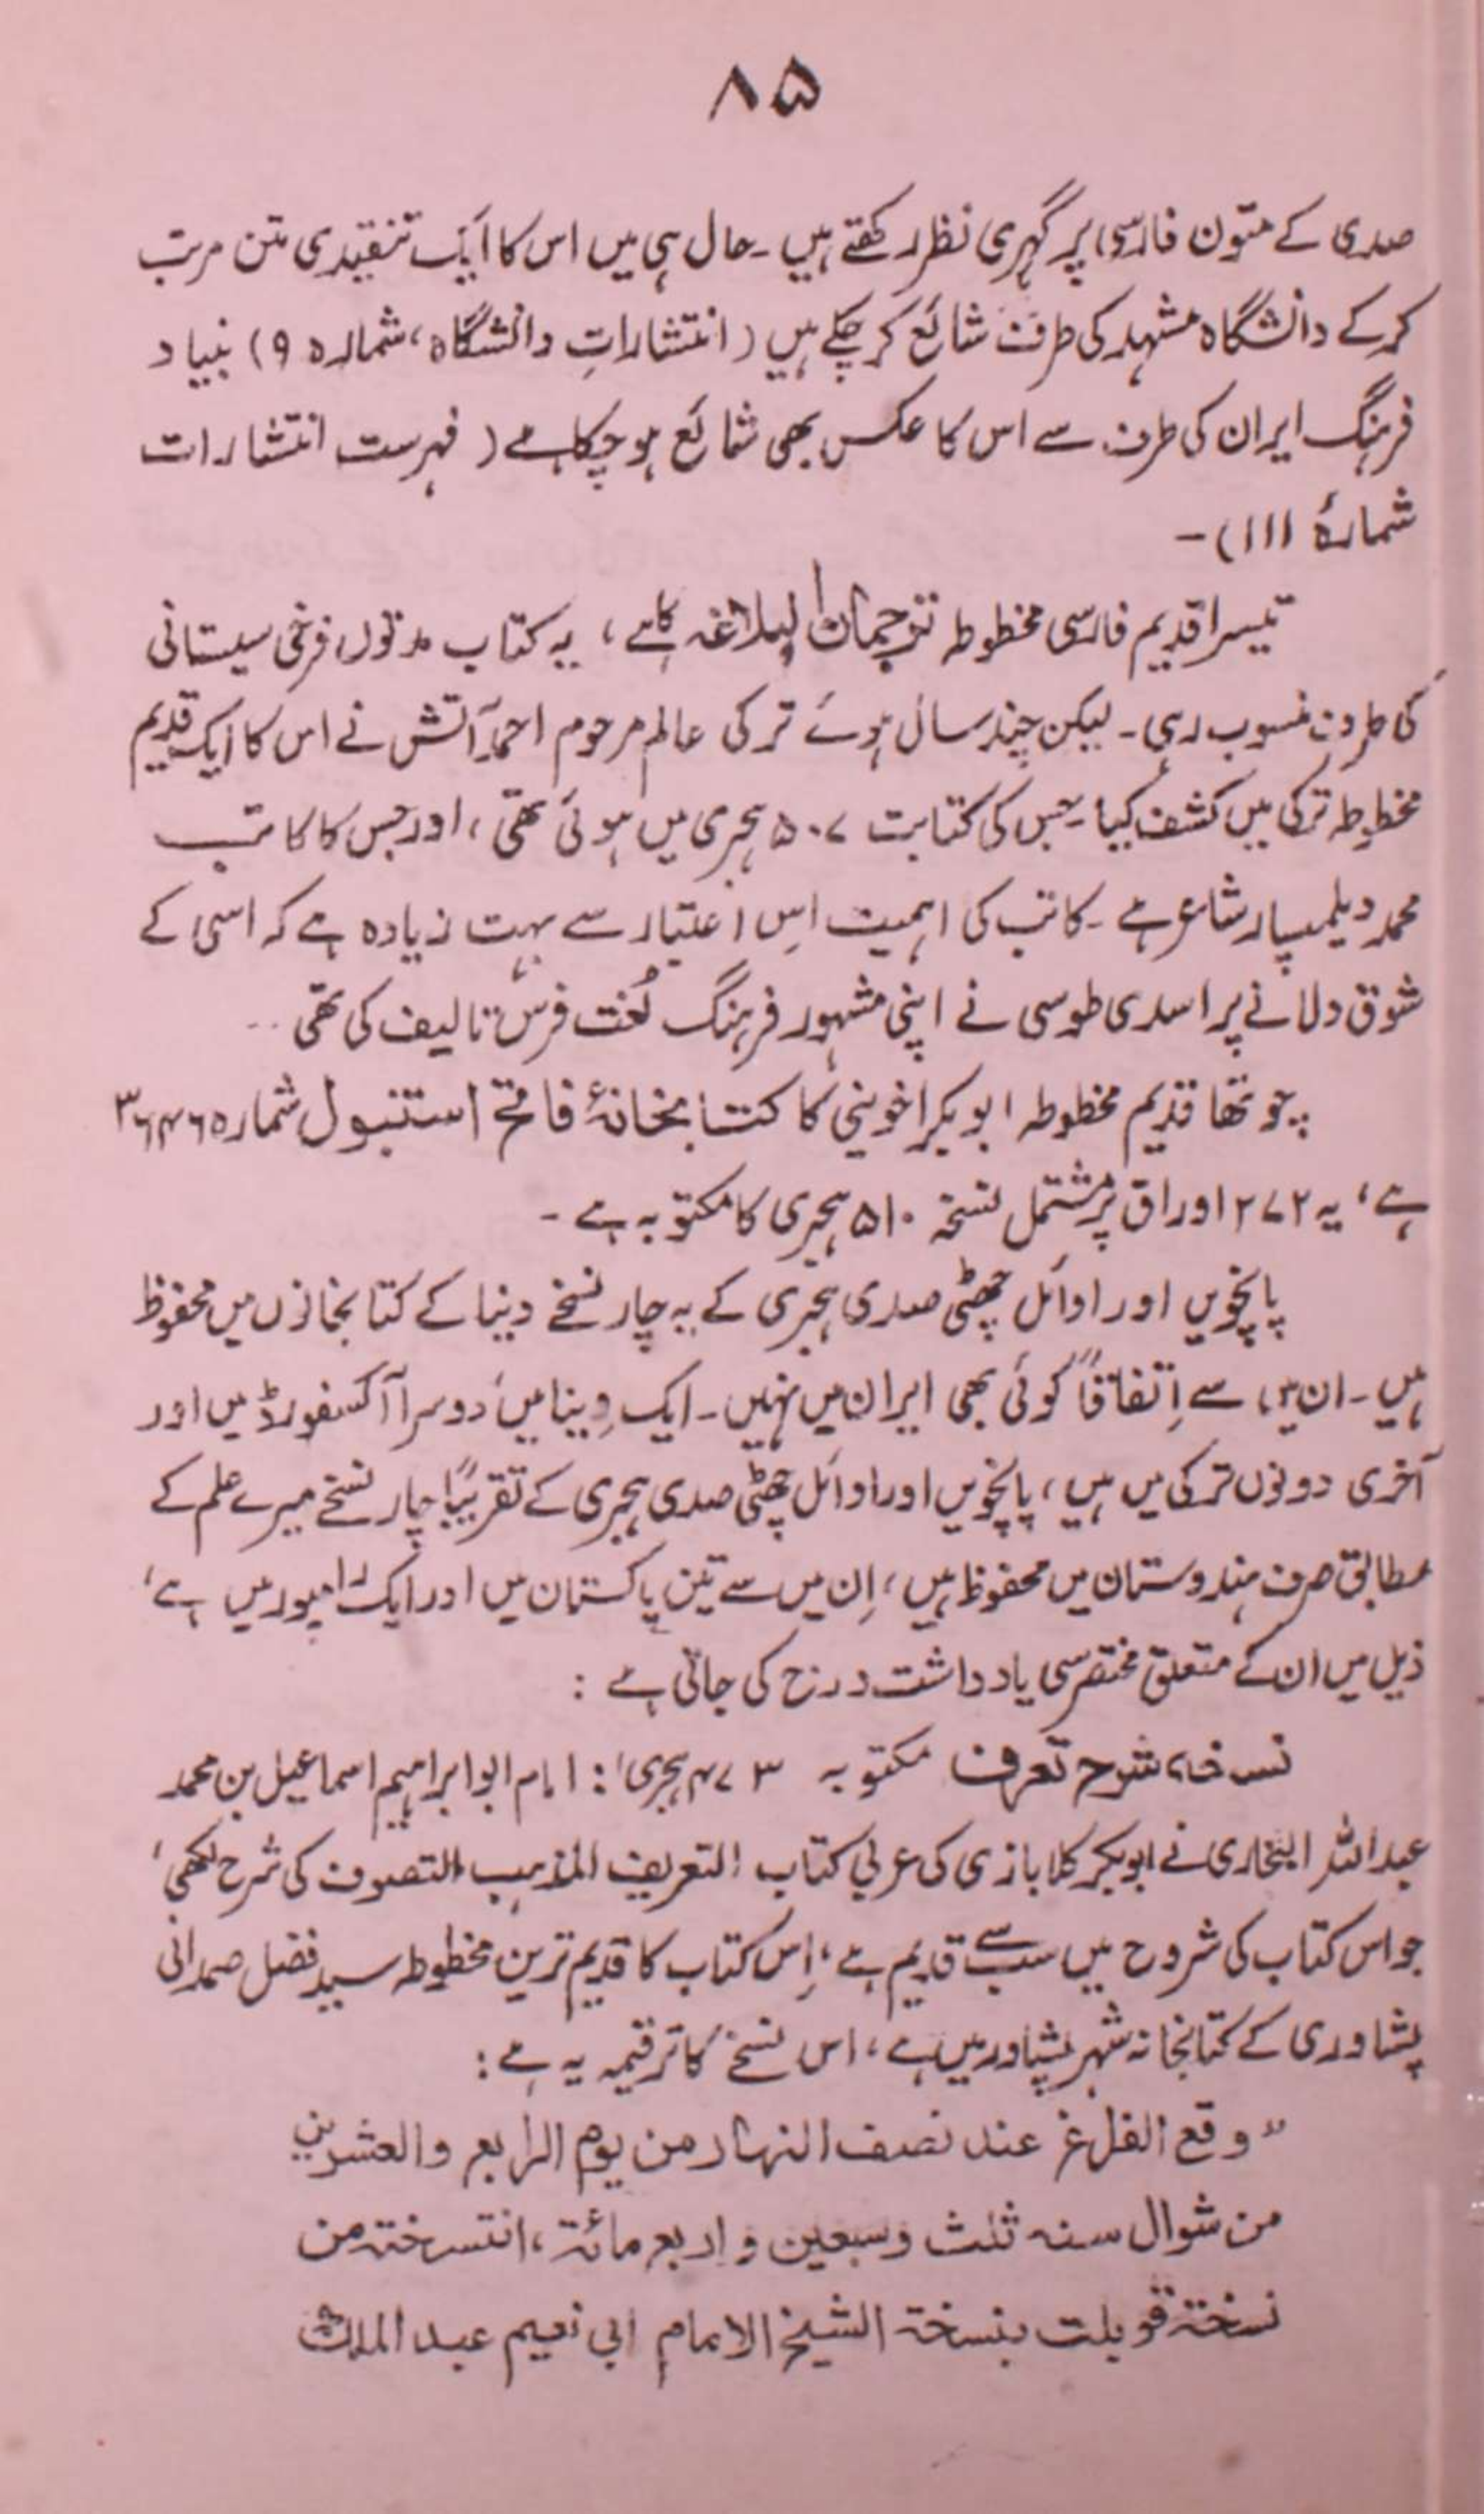 ۸۵
صدی کے متون فارسی پر گہری نظر رکھتے ہیں ۔ حال ہی میں اس کا ایک تنقیدی متن مرتب
کرکے دانشگاہ مشہد کی طرف شائع کر چکے ہیں (انتشاراتِ دانشگاہ، شمارہ ۹) بنیاد
فرہنگ ایران کی طرف سے اس کا عکس بھی شائع ہو چکا ہے (فہرست انتشارات
شمارۂ ۱۱۱) ۔
تیسرا قدیم فارسی مخطوطہ ترجمان البلاغہ کا ہے، یہ کتاب مدتوں فرخی سیستانی
کی طرف منسوب رہی ۔ لیکن چند سال ہوئے ترکی عالم مرحوم احمد آتش نے اس کا ایک قدیم
مخطوطہ ترکی میں کشف کیا ۔ جس کی کتابت ۵۰۷ ہجری میں ہوئی تھی، اور جس کا کاتب
محمد دیلمسپار شاعر ہے ۔ کاتب کی اہمیت اِس اعتبار سے بہت زیادہ ہے کہ اسی کے
شوق دلانے پر اسدی طوسی نے اپنی مشہور فرہنگ لُغت فرس تالیف کی تھی ..
چوتھا قدیم مخطوطہ ابو بکر اخوینی کا کتابخانۂ فاتح استنبول شمارہ ۳۶۴۶
ہے، یہ ۲۷۲ اوراق پر مشتمل نسخہ ۵۱۰ ہجری کا مکتوبہ ہے ۔
پانچویں اور اوائل چھٹی صدی ہجری کے یہ چار نسخے دنیا کے کتابخانوں میں محفوظ
ہیں ۔ ان میں سے اِتفاقاً کوئی بھی ایران میں نہیں ۔ ایک وِینا میں، دوسرا آکسفورڈ میں اور
آخری دونوں ترکی میں ہیں، پانچویں اور اوائل چھٹی صدی ہجری کے تقریباً چار نسخے میرے علم کے
مطابق صرف ہندوستان میں محفوظ ہیں، اِن میں سے تین پاکستان میں اور ایک رامپور میں ہے،
ذیل میں ان کے متعلق مختصر سی یادداشت درج کی جاتی ہے :
نسخہ شرح تعرف مکتوبہ ۴۷۳ ہجری : امام ابو ابراہیم اسماعیل بن محمد
عبداللہ البخاری نے ابوبکر کلابازی کی عربی کتاب التعریف المذہب التصوف کی شرح لکھی،
جو اس کتاب کی شروح میں سب سے قدیم ہے، اِس کتاب کا قدیم ترین مخطوطہ سید فضل صمدانی
پشاوری کے کتابخانہ شہر پشاور میں ہے، اس نسخے کا ترقیمہ یہ ہے :
"وقع الفراغ عند نصف النهار من يوم الرابع والعشرين
من شوال سنه ثلث وسبعين و اربع مائة، انتسخته من
نسخة قوبلت بنسخة الشيخ الامام ابي نعيم عبد الملك